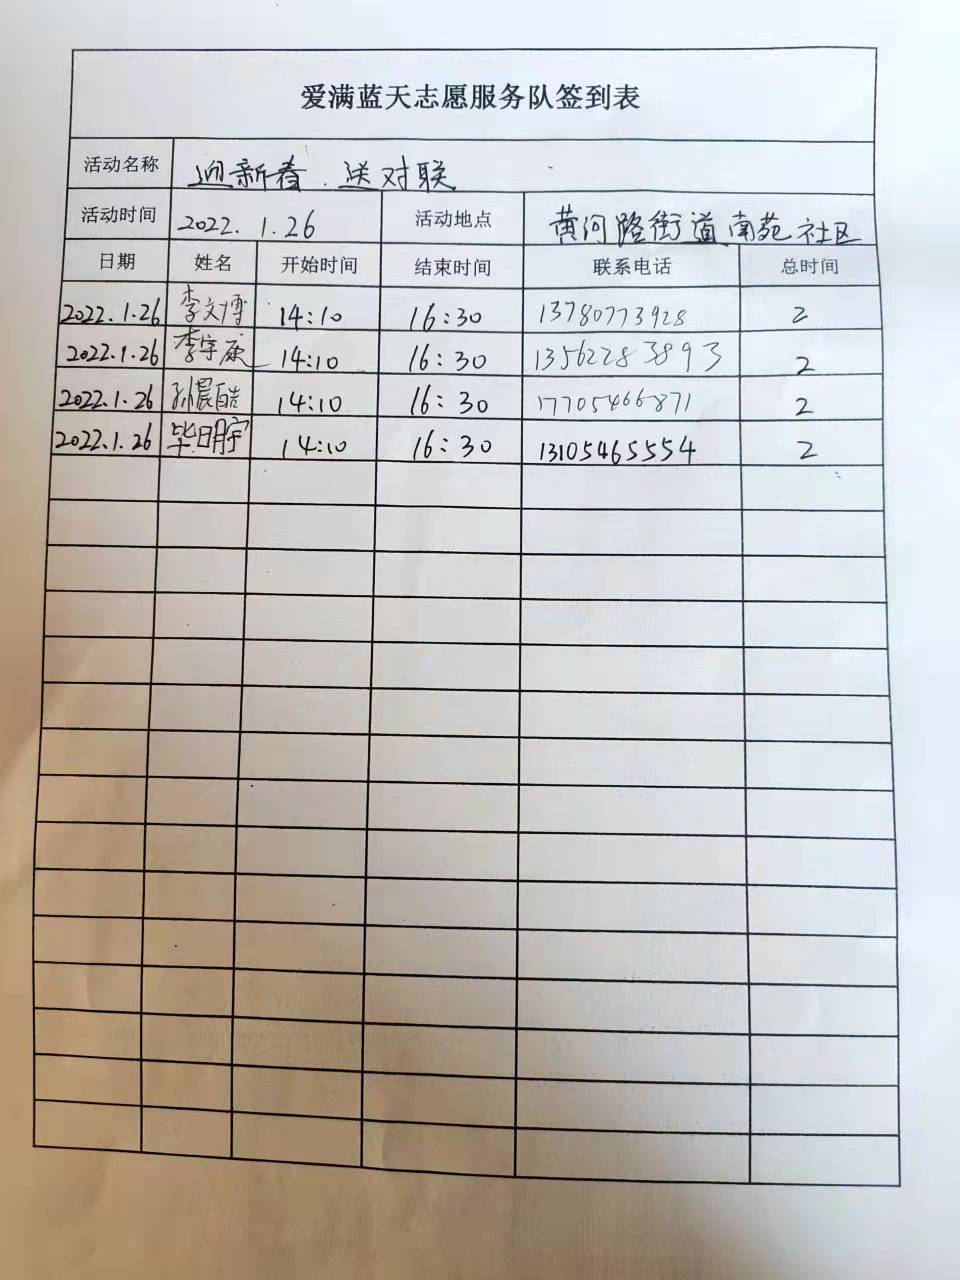 爱满蓝天志愿服务队签到表
活动名称 迎新春、送对联
活动时间 2022.1.26 活动地点 黄河路街道南苑社区
日期 姓名 开始时间 结束时间 联系电话 总时间
2022.1.26 李文博 14:10 16:30 13780773928 2
2022.1.26 李宇庆 14:10 16:30 13562283893 2
2022.1.26 孙晨皓 14:10 16:30 17705466871 2
2022.1.26 毕明宇 14:10 16:30 13105465554 2